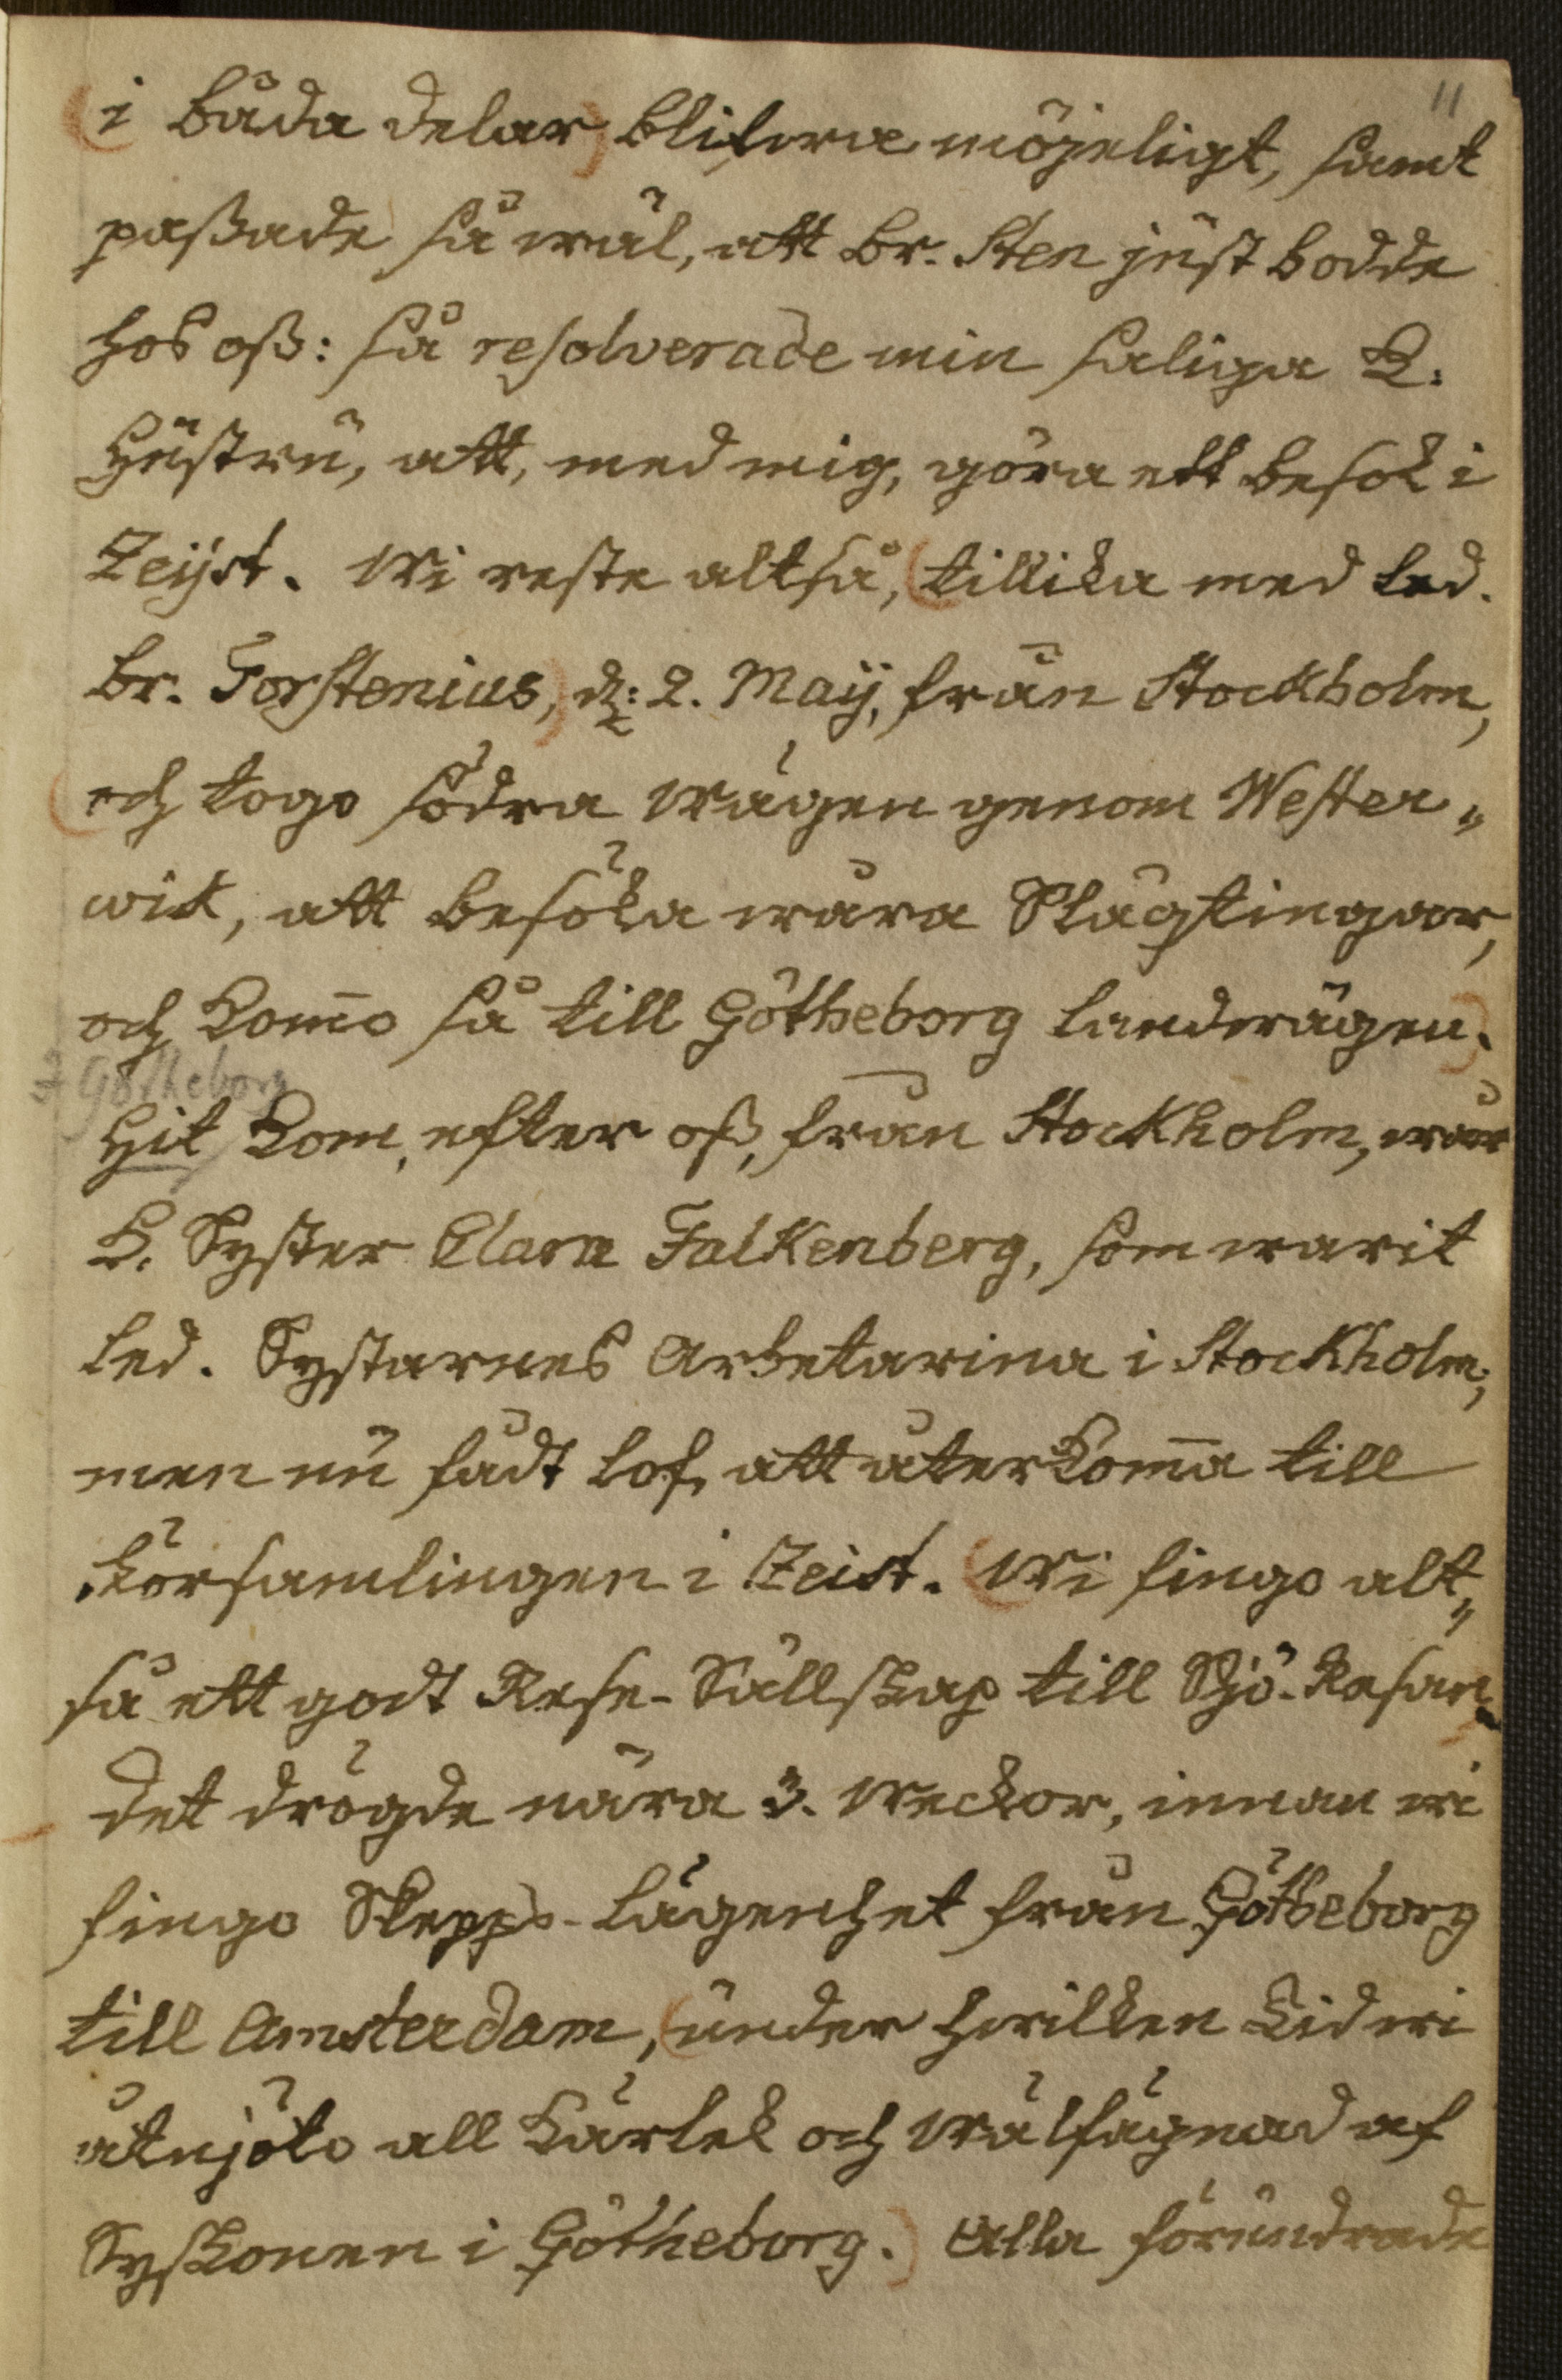 11
(i båda delar) blifva möjeligt, samt
paßade så wäl, att Br. Sten just bodde
hos oß: så resolverade min saliga K.
Hustru, att, med mig, göra ett besök i
Zeijst. Wi reste altså, (tillika med led.
Br. Forstenius,) d: 2. Maij, från Stockholm,
(och togo södra wägen genom Wester„
wik, att besöka wåra Slägtingar,
och kom̄o så till Götheborg landwägen.)
I Götheborg
Hit kom, efter oß, från Stockholm, wår
K. Syster Clara Falkenberg, som warit
led. Systarnes Arbetarina i Stockholm;
men nu fådt lof, att återkom̄a till
Församlingen i Zeist. (Wi fingo alt„
så ett godt Rese-Sällskap till Sjö-Resan)
det drögde nära 3. Weckor, innan wi
fingo Skepps-Lägenhet från Götheborg
till Amsterdam, (under hwilken Tid wi
åtnjöto all Kärlek och Wälfägnad af
Syskonen i Götheborg.) Alla förundrade